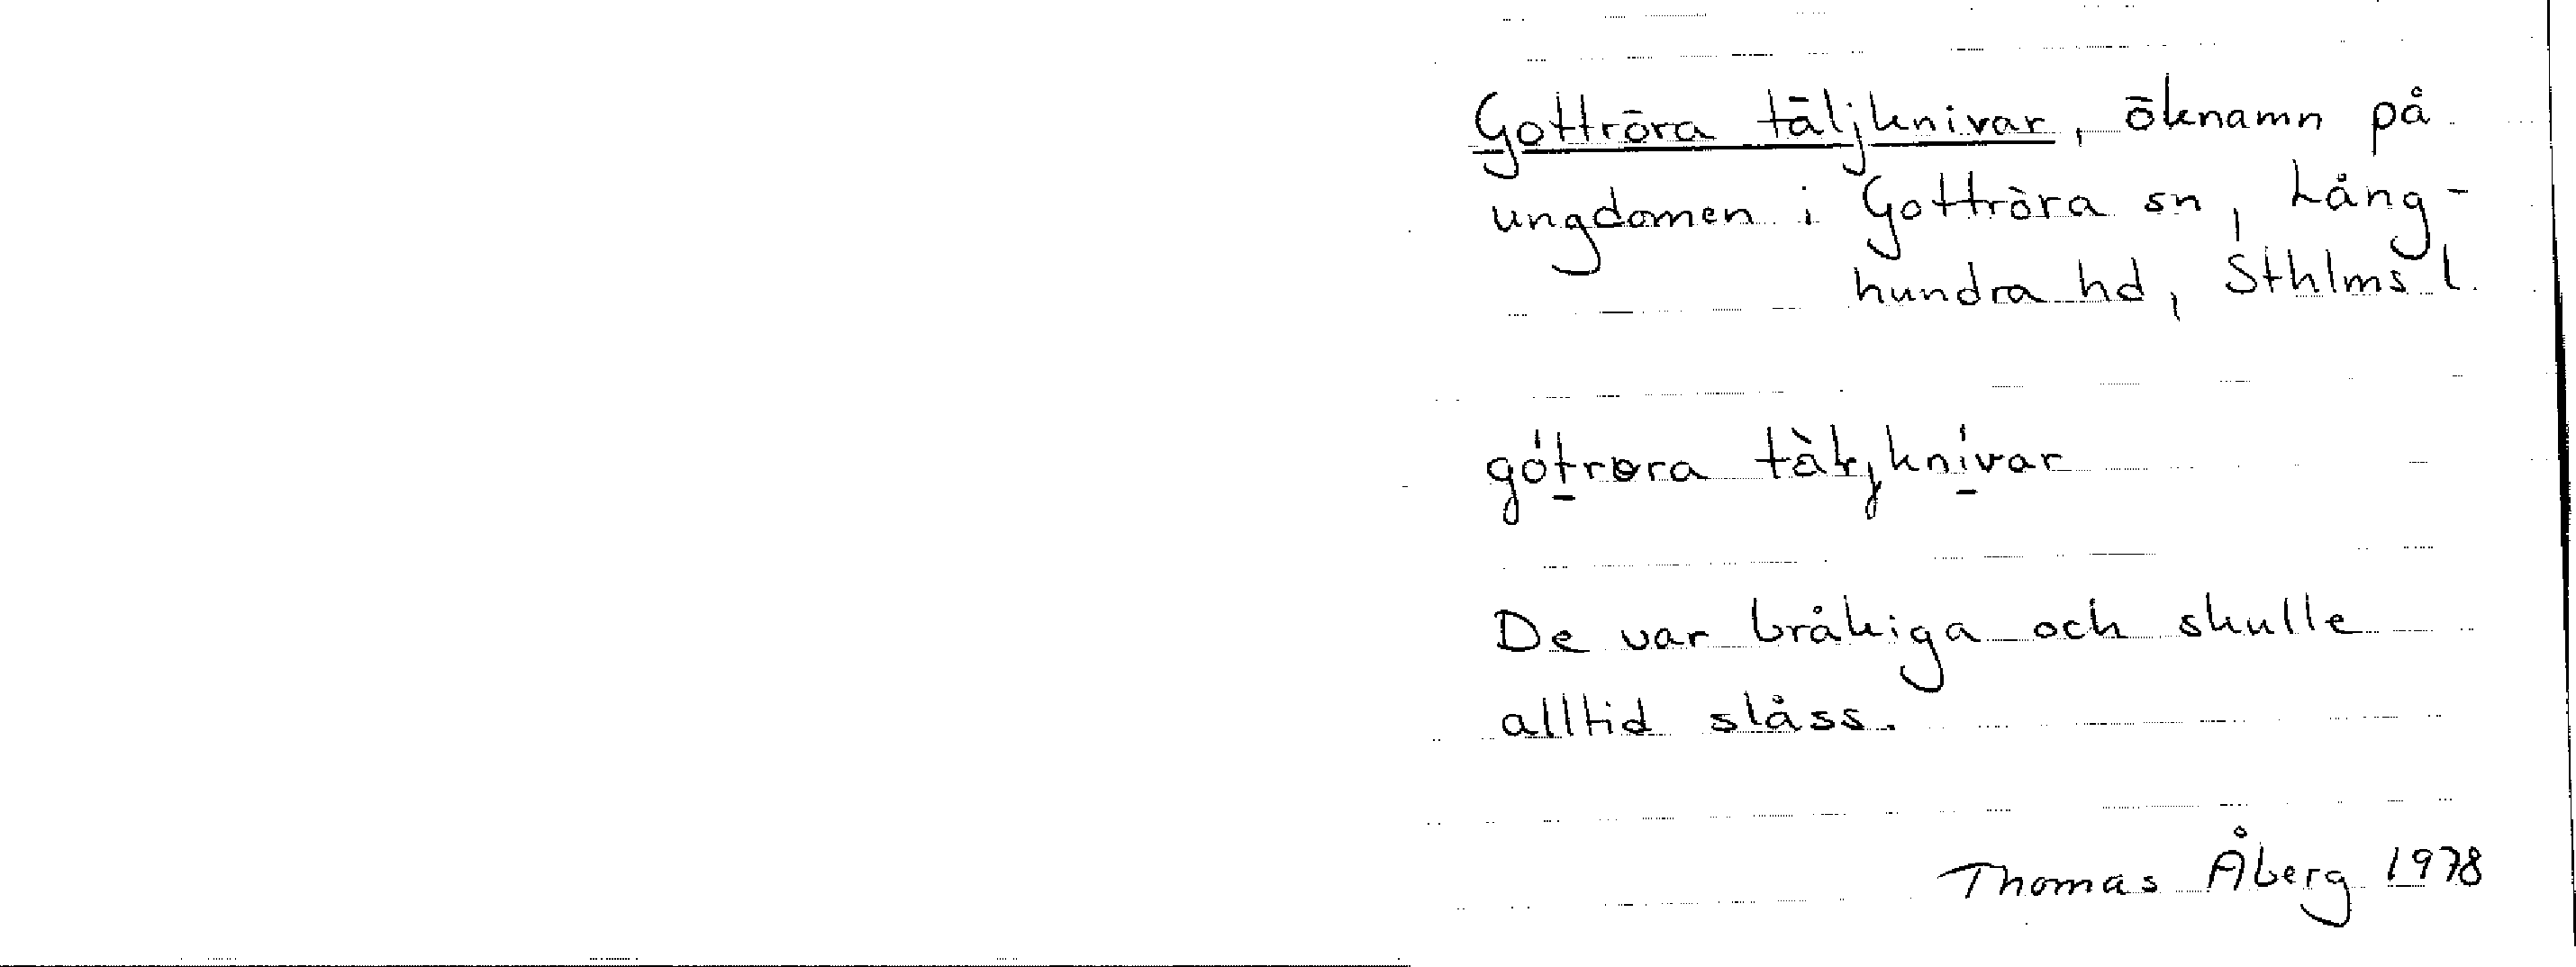 Gottröra täljknivar, öknamn på
ungdomen i Gottröra sn, Lång-
hundra hd, Sthlms l.
gót̲rɵra tàɭjkní̲var
De var bråkiga och skulle
alltid slåss.
Thomas Åberg 1978